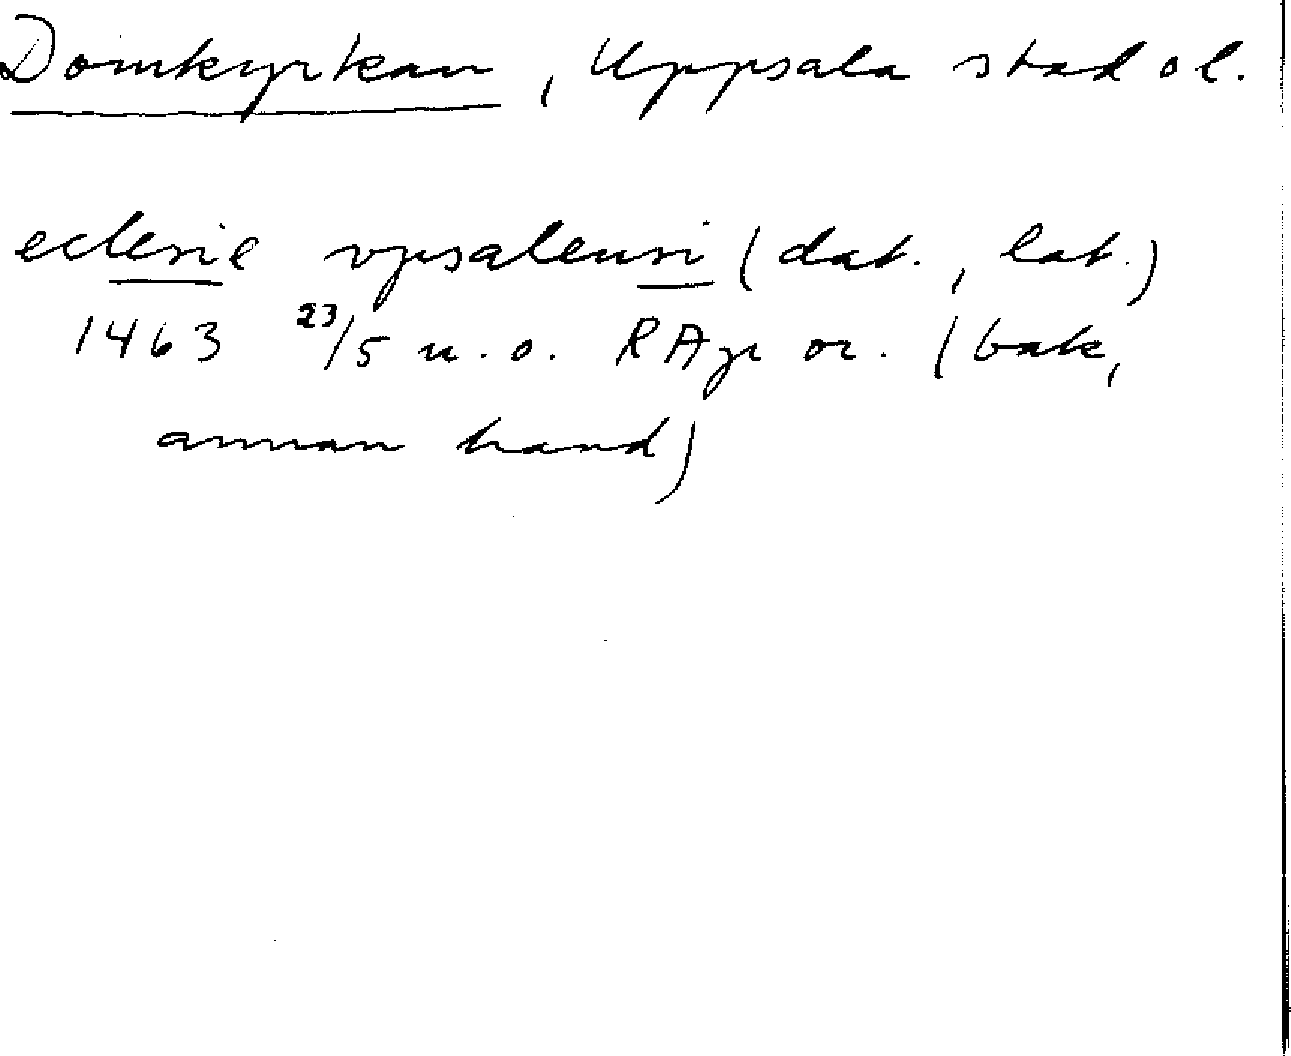 Domkyrkan, Uppsala stad ol.
eclesie vpsalensi (dat., lat.)
1463 23/5 u. o. RAp or. (bak,
annan hand)